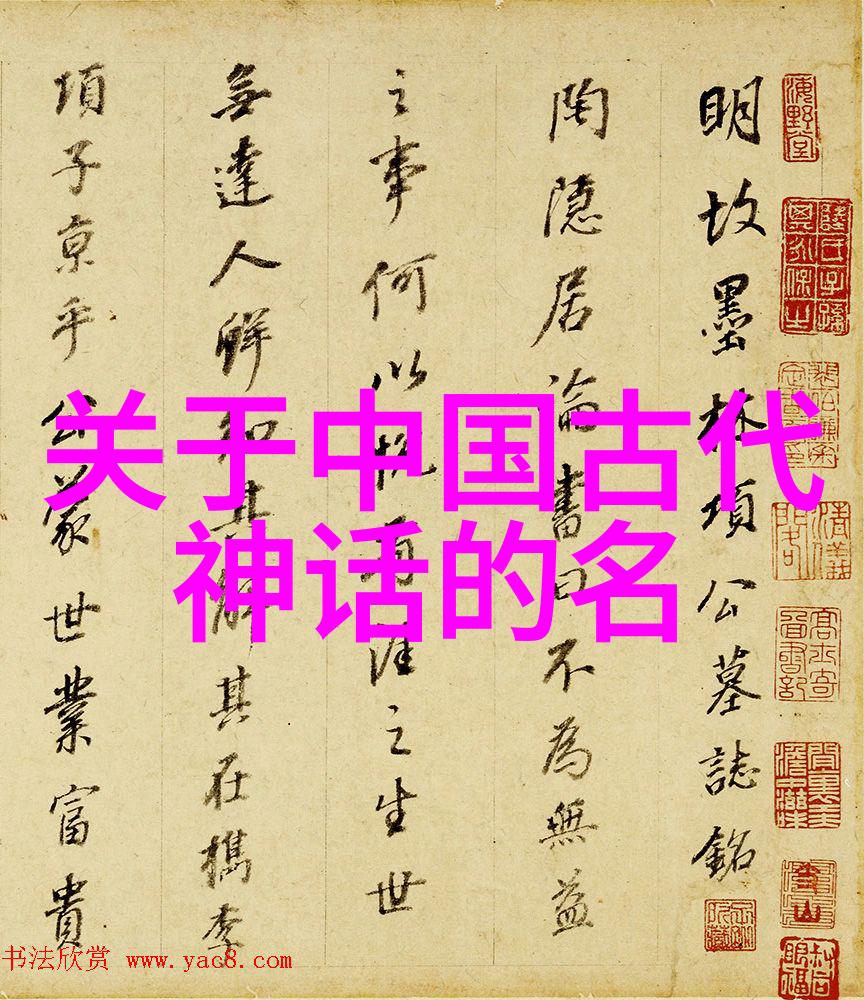 明故墨林項公墓誌銘
陶隱居論書曰不為無益
之事何以悅有涯之生世
無達人鮮知其解其在檇李
項子京乎公蒙世業富貴
关于中国古代
神话的名
书法欣赏 www.yac8.com